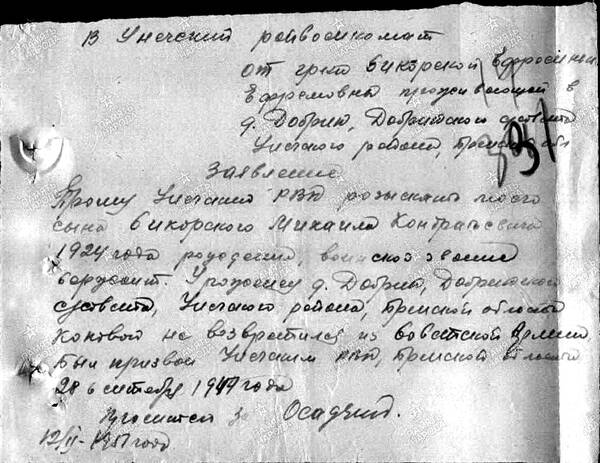 В Унечский райвоенкомат
от гр-ки Сикорской Ефросиньи
Ефремовны проживающей в
д. Добрик, Добрикского с/совета
Унечского района, Брянской обл
Заявление
Прошу Унечский РВК розыскать моего
сына Сикорского Михаила Кондратьевича
1924 года рождения, воинское звание
сержант. Уроженец д. Добрик, Добрикского
с/совета, Унечского района, Брянской области
который не возвратился из Советской Армии,
Был призван Унечским РВК, Брянской области
28 сентября 1944 года
12/II-1951 года.